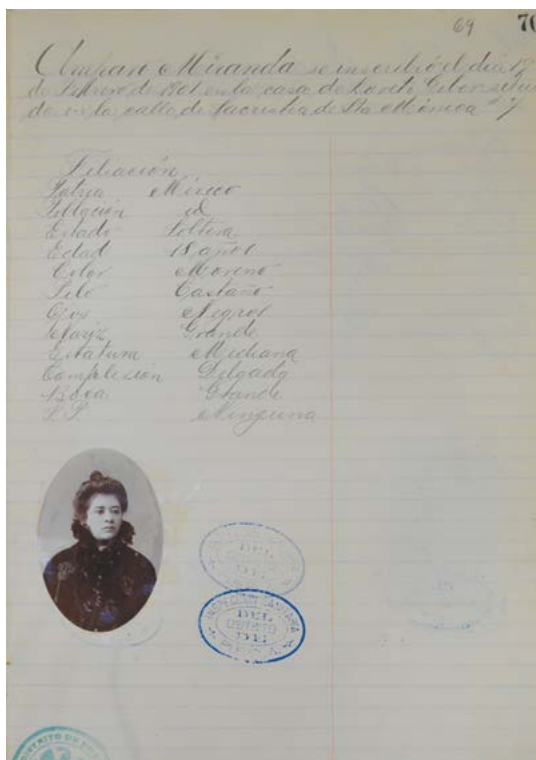 69 70
Amparo Miranda se inscribió el día 19
de Febrero de 1901 en la casa de Loreto situa
da en la calle de Sacristía de Sta Mónica # 7
Filiación
Patria Mexico
Religión id
Estado Soltera
Edad 18 años
Color Moreno
Pelo Castaño
Ojos Negros
Nariz Grande
Estatura Mediana
Complexión Delgada
Boca Grande
S.P. Ninguna
DEL
DE
INSPECCION SANITARIA
DEL
DISTRITO
DE
DISTRITO DE